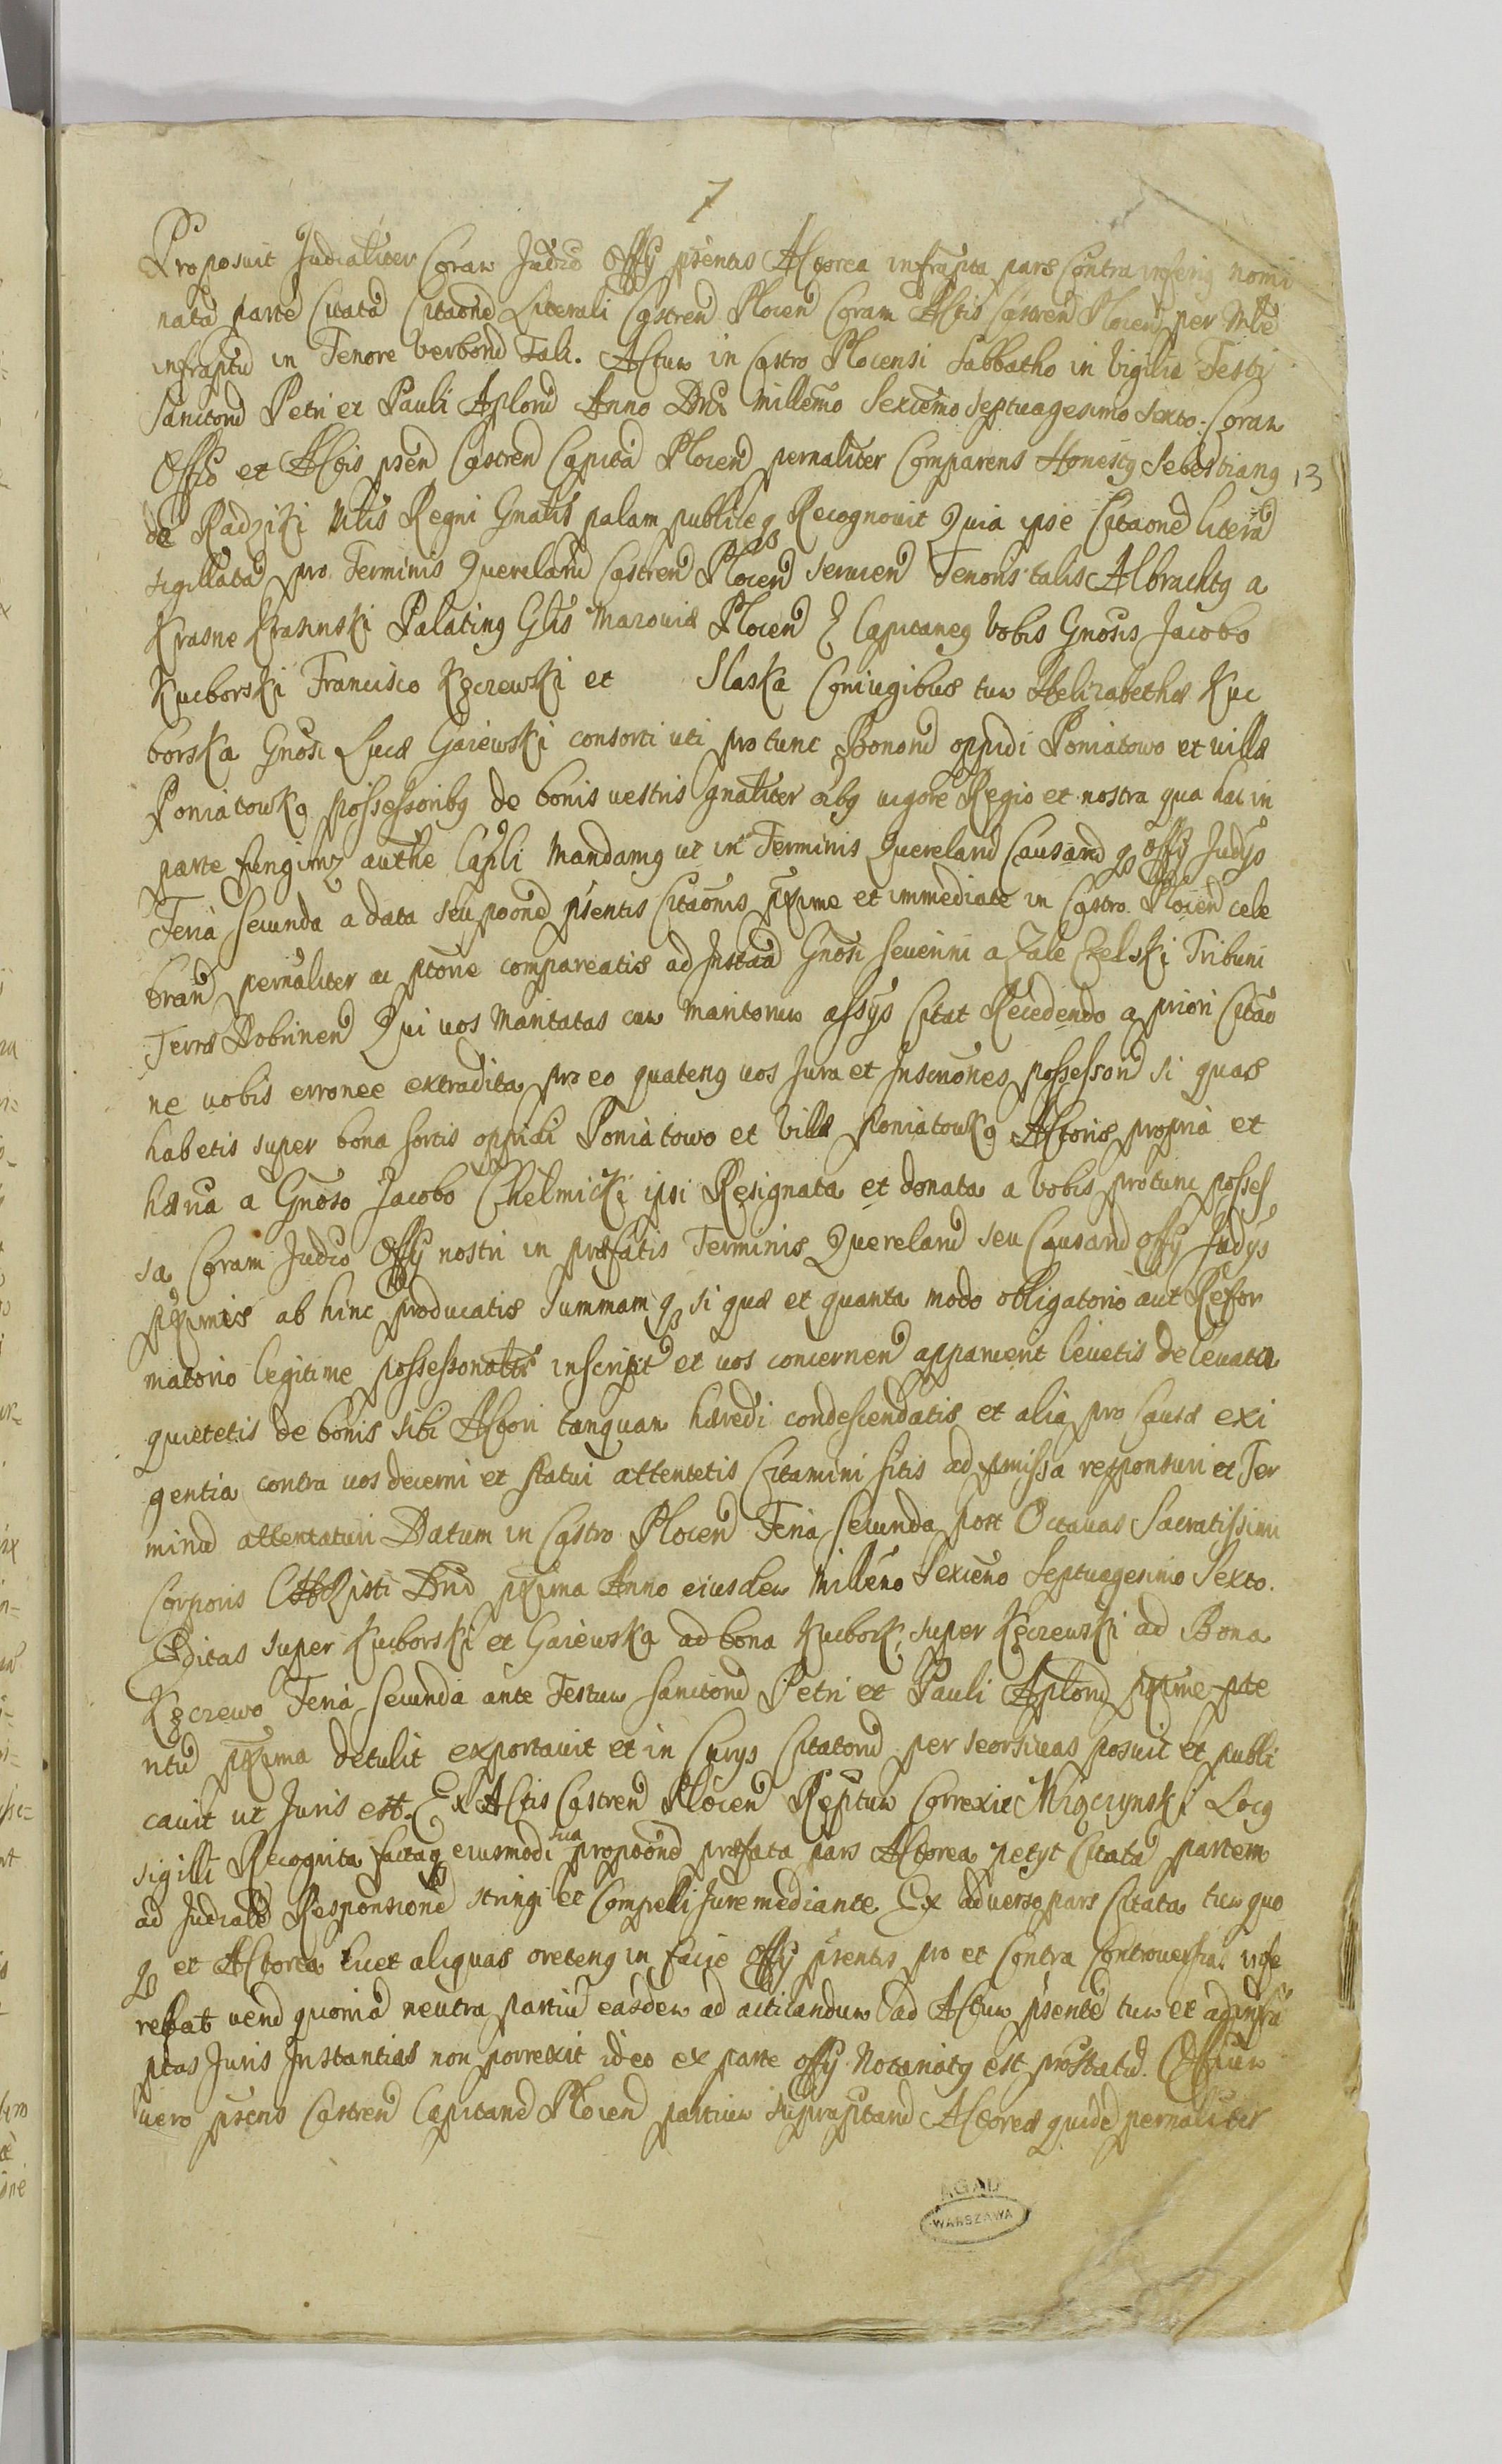 7
Proposuit Judialiter Coram Judio Offy pńtis Actorea infrapta pars Contra inferiq nomi
natā parte Citatā Citaone Literali Castren Plocen Coram Actis Castren Plocen per Mle
infraptu in Tenore verboru Tali. Actum in Castro Plocensi Sabbatho in Vigilia Festi
Sanctoru Petri et Pauli Aplorū Anno Dni Millemo Sexcemo Septuagesimo Sexto. Coram
Offio et Actis psen Castren Capita Plocen pernaliter Comparens Honestq Sebestianq
13
de Radziki Mlis Regni Gnalis palam publiceq Recognovit Quia ipse Citaone literā
sigillata pro Terminis Querelaru Castren Plocen servien Tenoris talis Albrachtq a
Krasne Krasinski Palatinq Glis Mazovia Plocen & Capitaneq Vobis Gnosis Jacobo
Kucborski Francisco Kęczewski et Slaska Coniugibus tum Helizabetha Kuc
borska Gnosi Luca Gaiewski consorti uti pro tunc Bonoru oppidi Poniatowo et villa
Poniatowkq possessoribq de bonis vestris gnaliter oibq vigore Regio et nostra qua hac in
parte fungimq authe Capli Mandamq ut in Terminis Querelaru Causaru q offy Judys
Feria Secunda a data seu poone psentis Citaonis pxime et immediate in Castro Plocen cele
bran pernaliter ac ptorie compareatis ad Instaā Gnosi Severini a Zale Zelski Tribuni
Terra Dobrinen Qui vos Maritatas cum Maritorum assys Citat Recedendo a priori Citao
ne vobis erronee extradita pro eo quatenq vos Jura et Inscriones possesson si quas
habetis super bona sortis oppidi Poniatowo et Villa Poniatowkq Actoris propria et
haria a Gnoso Jacobo Chelmicki ipsi Resignata et donata a Vobis protunc posses
sa Coram Judio Offy nostri in prafatis Terminis Querelaru seu Causaru offy Judys
pximis ab hinc producatis Summamq si qua et quanta modo obligatorio aut Refor
matorio legitime possessionatis inscript et vos concernen apparuerit levetis de levata
quietetis de bonis sibi Actori tanquam haredi condescendatis et alia pro causa exi
gentia contra vos decerni et statui attentetis Citamini sitis ad pmissa responsuri et Ter
minu attentaturi Datum in Castro Plocen Feria Secunda post Octavas Sacratissimi
Corporis Christi Dni pxima Anno eiusdem Milleno Sexceno Septuagesimo Sexto.
Editas super Kucborski et Gaiewska ad bona Kucbork, super Kęczewski ad Bona
Kęczewo Feria Secunda ante Festum Sanctoru Petri et Pauli Aplorū pxime pte
ritu pxima detulit exportavit et in Curys Citatoru per seorsivas posuit et publi
cavit ut Juris est. Ex Actis Castren Plocen Reptum Correxit Miączynski Locq
Sigilli Recognita factaq eiusmodi sua propoone prafata pars Actorea petyt Citatā partem
ad Judiale Responsione stringi et Compelli Jure mediante Ex adverso pars Citata tum quo
q et Actorea licet aliquas oretenq in facie Offy psentis pro et Contra Controversias infe
rebat veru quonia neutra partiu easdem ad acticandum ad Actum psente tum et ad infra
ptas Juris Instantias non porrexit ideo ex parte offy Notariatq est prostatu. Officium
vero psens Castren Capitane Plocen partium supraptaru Actorea quide pernaliter
AGAD
WARSZAWA